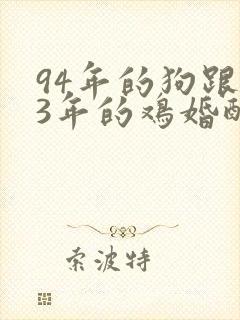 94年的狗跟
3年的鸡婚配
索波特